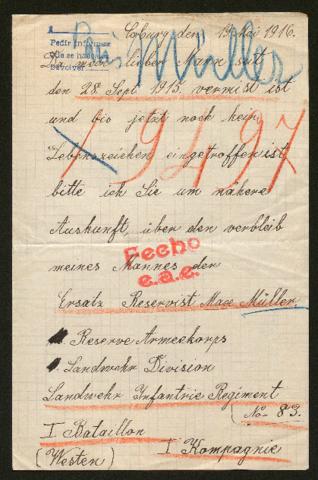 Pedir informes
Müller
Coburg den 19 Mai 1916.
Da mein lieben Mann seit
den 28. Sept. 1915 vermist ist
und bis jetzt noch kein
19427
Lebenszeichen eingetroffen ist
bitte ich Sie um nähere
Auskunft, über den verbleib
meines Mannes der
Fecho
e.a.e.
Ersatz Reservist Max Müller
Reserve Armeekorps
Landwehr Division
Landwehr Infantrie Regiment
No 83.
I Bataillon
I Kompagnie
(Westen)